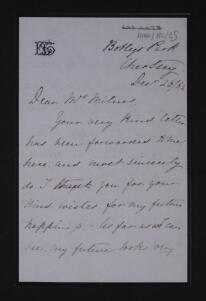 Botleys Park
Chertsey
Dear Mr Milnes,
Your very kind letter
has been forwarded to me
here and most sincerely
do I thank you for your
kind wishes for my future
happiness - As far as I can
see my future looks very